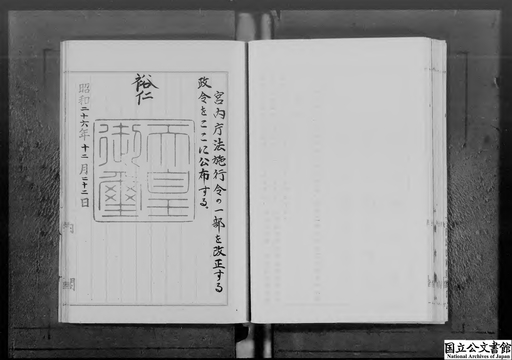 宮内庁法施行令の一部を改正する
政令をここに公布する。
裕仁
天皇
御璽
昭和二十六年十二月二十二日
国立公文書館
National Archives of Japan